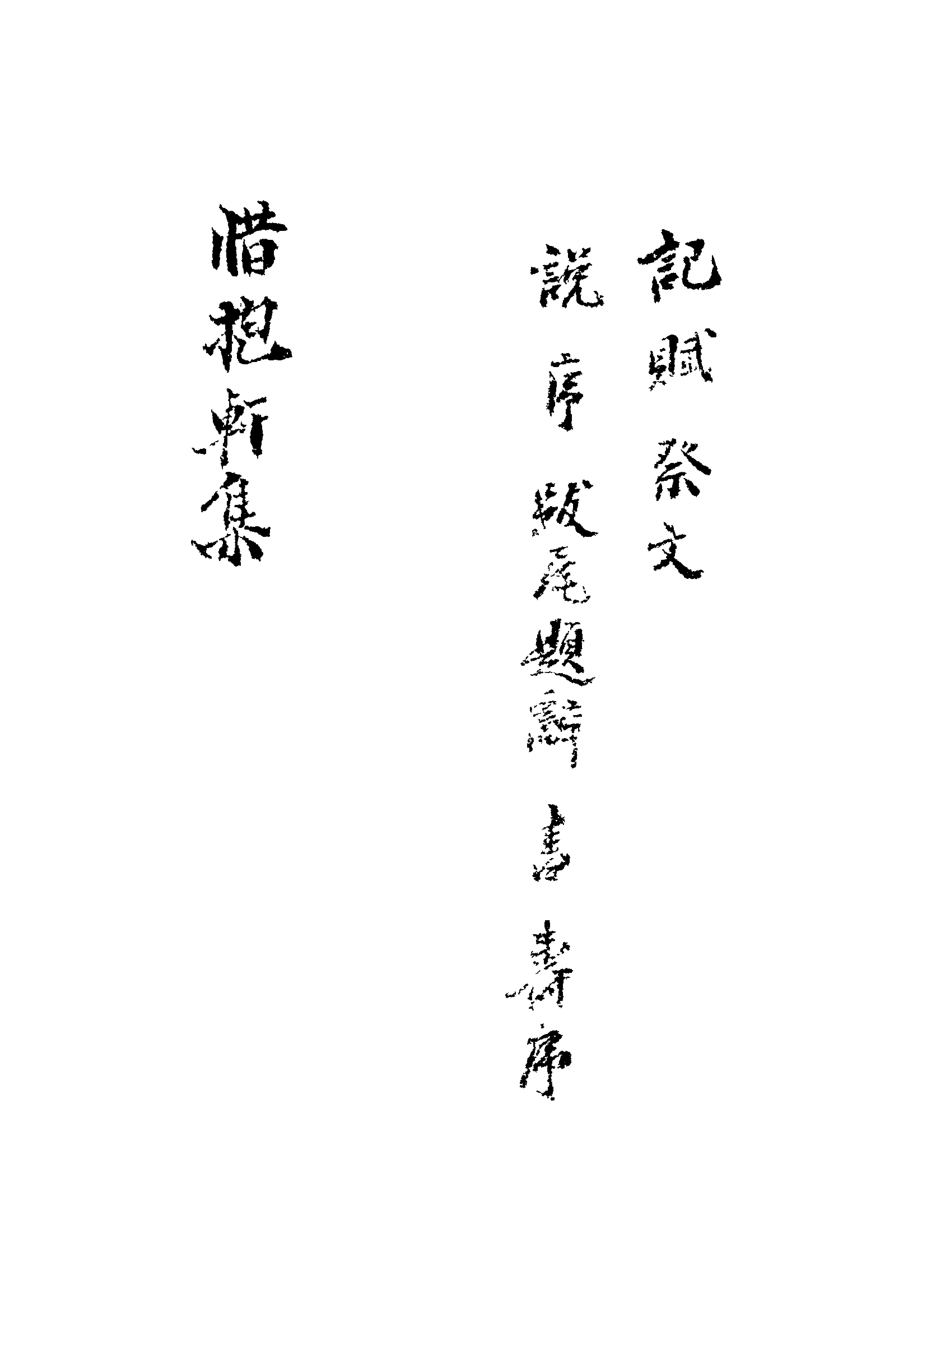 記 賦 祭文
說 序 跋尾題辭 書 壽序
惜抱軒集